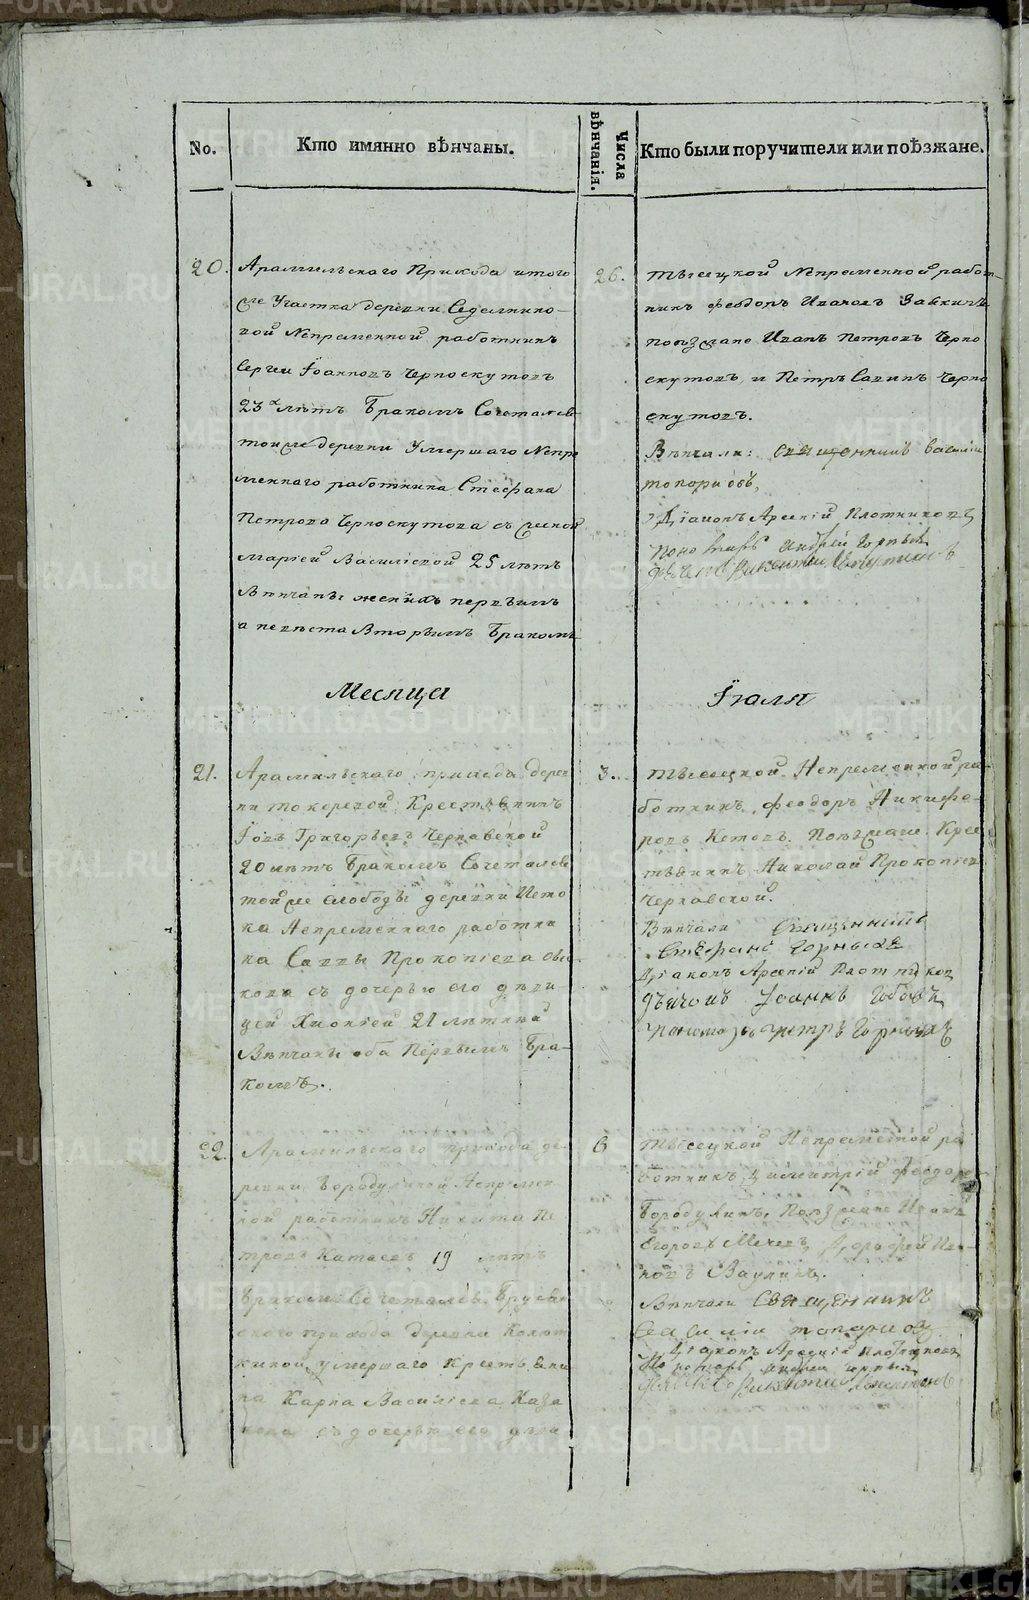 No.
Кто имянно вѣнчаны.
Числа вѣнчанiя.
Кто были поручители или поѣзжане.
20.
Арамильскаго Прихода итого
же Участка деревни Седелнико-
вой Непременной работникъ
Сергий Iоанновъ Черноскутовъ
23х лѣтъ Бракомъ Сочетался
тоиже деревни Умершаго Непре
меннаго работника Стефана
Петрова Черноскутова съ женой
Марiей Васильевой 25 лѣтъ
Вѣнчаны женихъ первымъ
а невѣста Вторымъ Бракомъ
26.
тысецкой Непременной работ-
никъ Феодоръ Ивановъ
поѣзжане Иванъ Петровъ Черно
скутовъ, и Петръ Савинъ Черно
скутовъ.
Вѣнчали: Священникъ Василiи
топорковъ,
Дiаконъ Арсенiй Плотниковъ
Пономарь Андрей Горныхъ
Месяца
Iюля
21.
Арамильскаго прихода дерев
ни токоревой Крестьянинъ
Iовъ Григорьевъ Чернавской
20 лѣтъ Бракомъ Сочетался
тойже слободы деревни Исто
ка Непременнаго работни
ка Саввы Прокопiева
кова съ дочерью его дѣви
цей Хионiей 21 лѣтней
Вѣнчаны оба Первымъ Бра-
комъ.
3.
тысецкой Непременной ра-
ботникъ, Феодоръ Никифо-
ровъ Кетовъ. Поѣзжане Крес
тьянинъ Николай Прокопiевъ
Чернавской.
Вѣнчали Священникъ
Стефанъ Горныхъ
Дiаконъ Арсенiй Плотников
Дьячокъ Iоаннъ
Пономарь Петръ Горныхъ
22.
Арамильскаго прихода де-
ревни Бородулиной Непремен
ной работникъ Никита Пе
тровъ Катаевъ 19 лѣтъ
Бракомъ Сочетался
скаго прихода деревни Колют
киной умершаго Крестьяни
на Карпа Василiева Каза
кова съ дочерью его дѣви
6
тысецкой Непременной ра
ботникъ Димитрiй Феодоровъ
Бородулинъ, Поѣзжане Иванъ
Егоровъ Дорофей Ива-
новъ Ваулинъ.
Вѣнчали Священникъ
Василiи топорковъ
Дiаконъ Арсенiй Плотниковъ
Пономарь Андрей Горныхъ
METRIKI.GASO-URAL.RU